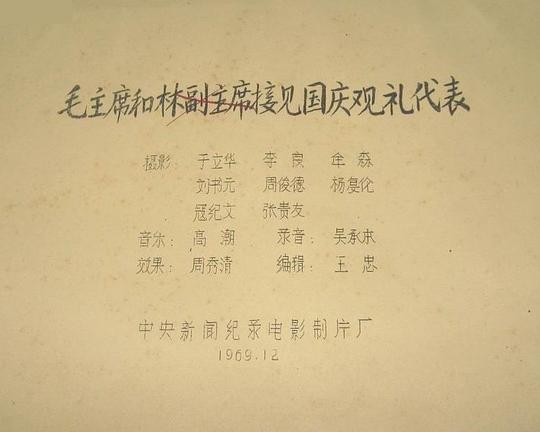 毛主席和林副主席接见国庆观礼代表
摄影： 于立华 李良 牟森
刘书元 周俊德 杨复伦
寇纪文 张贵友
音乐： 高潮 录音： 吴承本
效果： 周秀清 编辑： 王忠
中央新闻纪录电影制片厂
1969.12